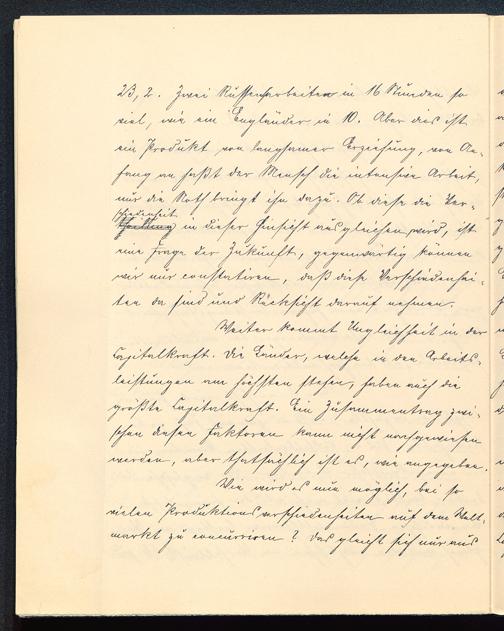 23,2. Zwei Russen arbeiten in 16 Stunden so
viel, wie ein Engländer in 10. Aber dies ist
ein Produkt von langsamer Erziehung, von An-
fang an haßt der Mensch die intensive Arbeit,
nur die Noth bringt ihn dazu. Ob diese die Ver-
schiedenheit
in dieser Hinsicht ausgleichen wird, ist
eine Frage der Zukunft, gegenwärtig können
wir nur constatiren, daß diese Verschiedenhei-
ten da sind und Rücksicht darauf nehmen.
Weiter kommt Ungleichheit in der
Capitalkraft. Die Länder, welche in den Arbeits-
leistungen am höchsten stehen, haben auch die
größte Capitalkraft. Ein Zusammentrag zwi-
schen diesen Faktoren kann nicht nachgewiesen
werden, aber thatsächlich ist es, wie angegeben.
Wie wird es nun möglich, bei so
vielen Produktionsverschiedenheiten auf dem Welt-
markt zu concurriren? Das gleicht sich nur aus